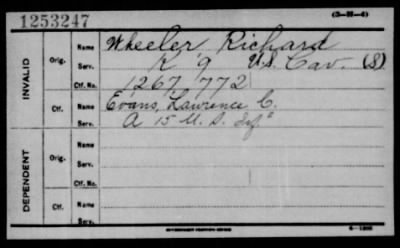 1253247
(3-22-4)
INVALID
Orig. Name Wheeler, Richard
Serv. K 9 U.S. Cav. (S)
Ctf. No. 1267,772
Ctf. Name Evans, Lawrence C.
Serv. A 15 U. S. Inf.
DEPENDENT
Orig. Name
Serv.
Ctf. No.
Ctf. Name
Serv.